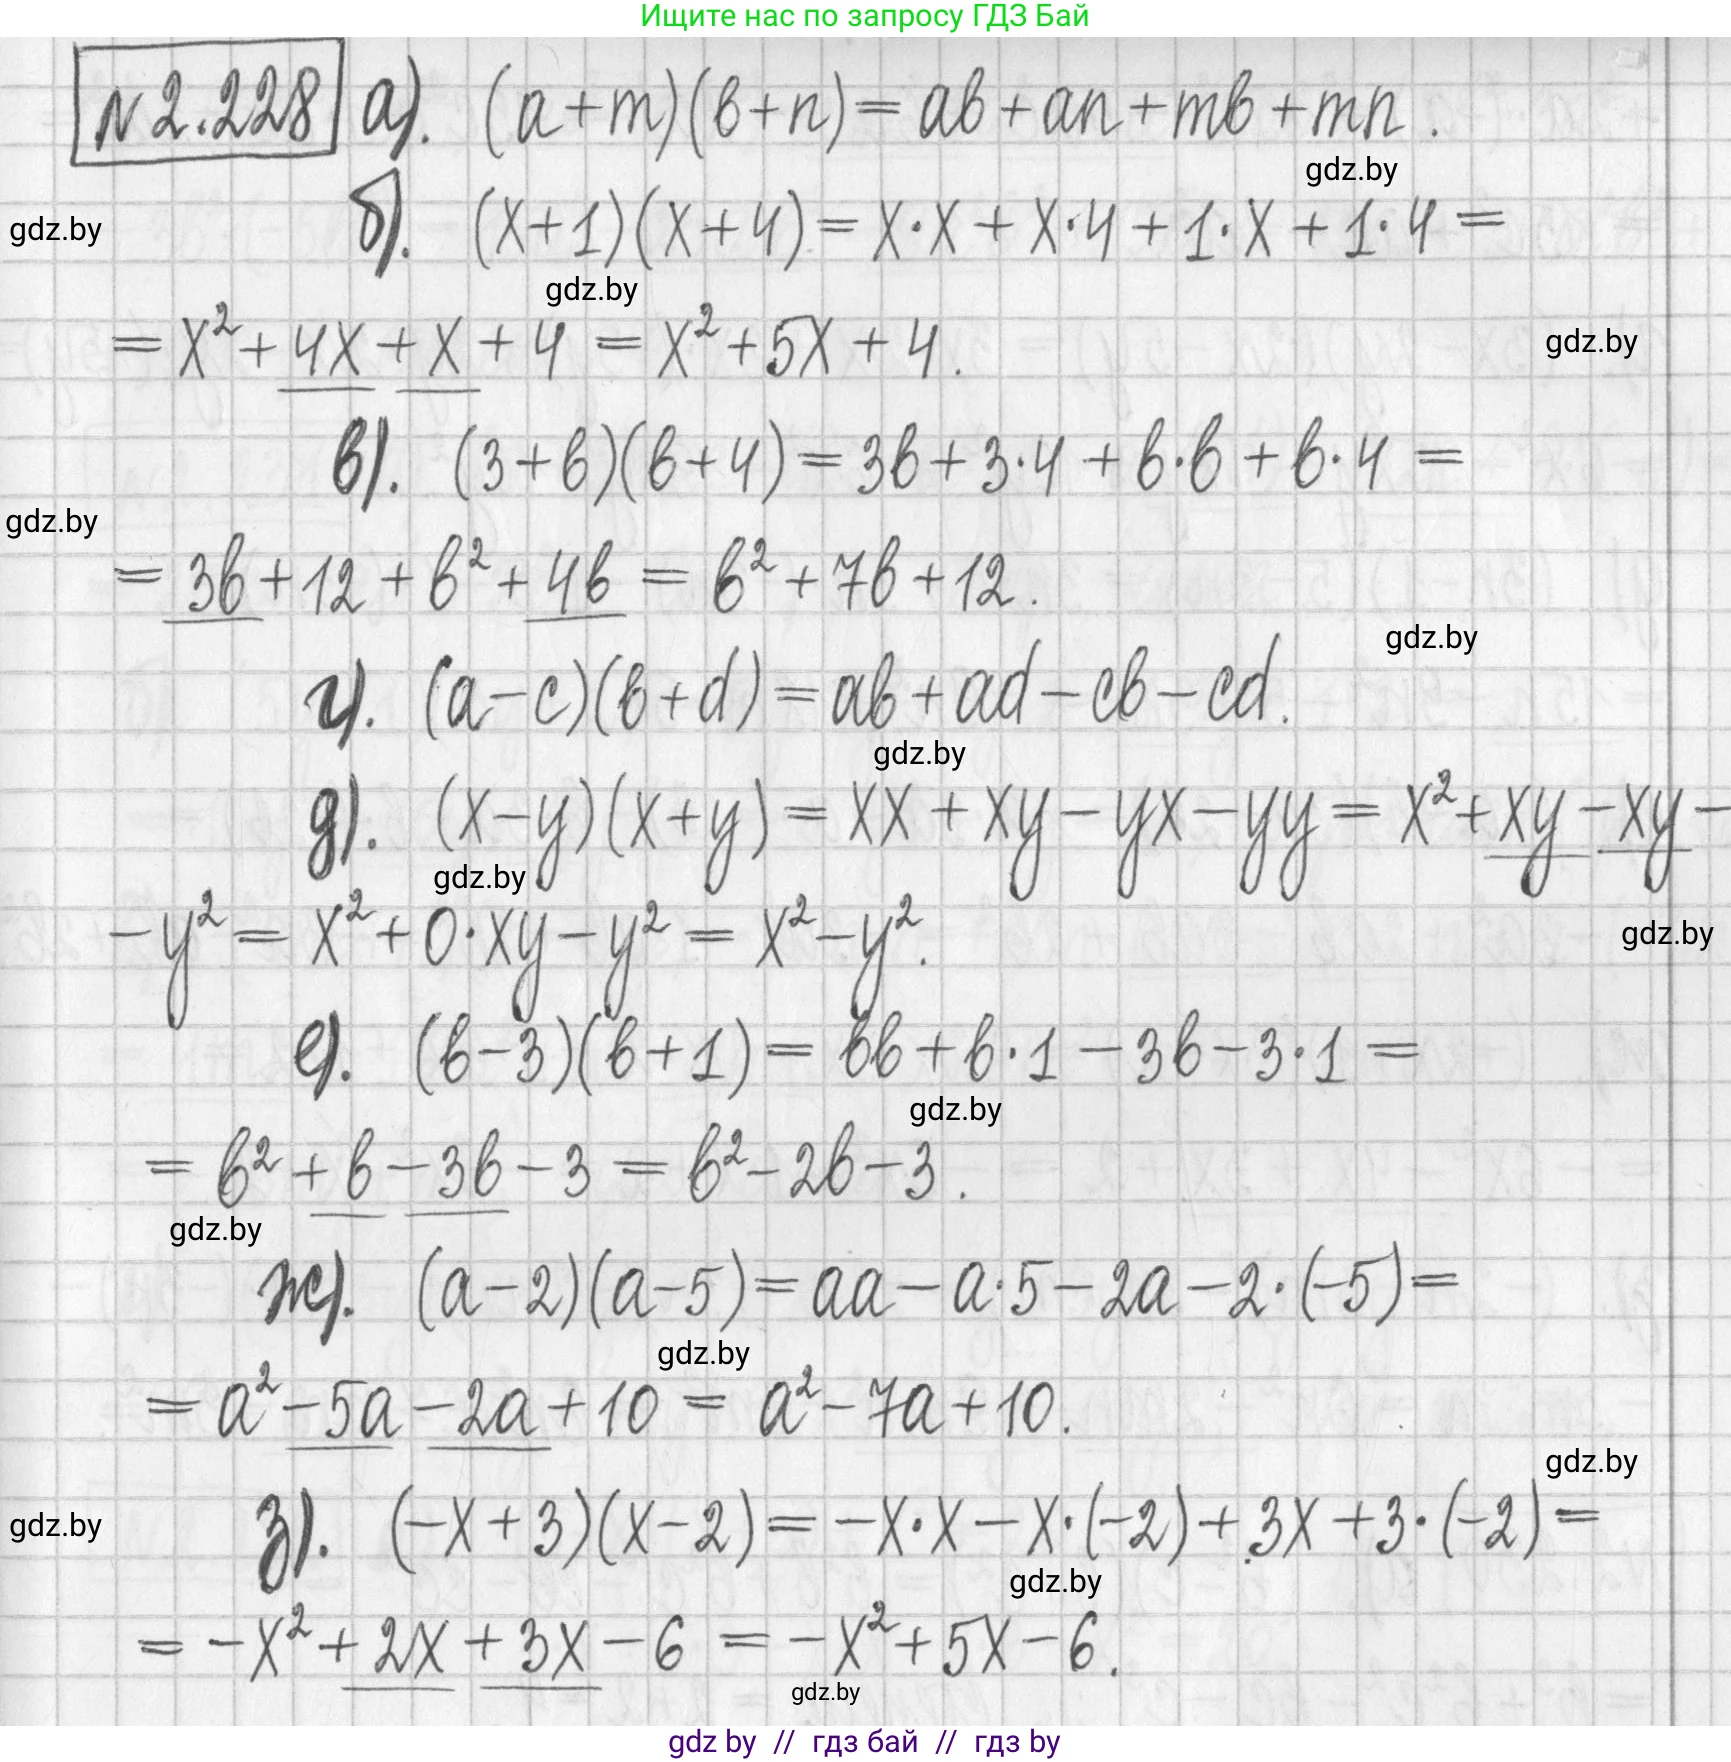 Ищите нас по запросу ГДЗ Бай
N 2.228 а). (a+m)(b+n) = ab + an + mb + mn .
gdz.by
б). (x+1)(x+4) = x·x + x·4 + 1·x + 1·4 =
gdz.by
gdz.by
= x² + 4x + x + 4 = x² + 5x + 4.
gdz.by
в). (3+b)(b+4) = 3b + 3·4 + b·b + b·4 =
gdz.by
= 3b + 12 + b² + 4b = b² + 7b + 12.
gdz.by
г). (a-c)(b+d) = ab + ad - cb - cd.
gdz.by
д). (x-y)(x+y) = xx + xy - yx - yy = x² + xy - xy -
gdz.by
- y² = x² + 0·xy - y² = x² - y².
gdz.by
е). (b-3)(b+1) = bb + b·1 - 3b - 3·1 =
gdz.by
= b² + b - 3b - 3 = b² - 2b - 3.
gdz.by
ж). (a-2)(a-5) = aa - a·5 - 2a - 2·(-5) =
gdz.by
= a² - 5a - 2a + 10 = a² - 7a + 10.
gdz.by
з). (-x+3)(x-2) = -x·x - x·(-2) + 3x + 3·(-2) =
gdz.by
gdz.by
= -x² + 2x + 3x - 6 = -x² + 5x - 6.
gdz.by
gdz by // гдз бай // гдз by